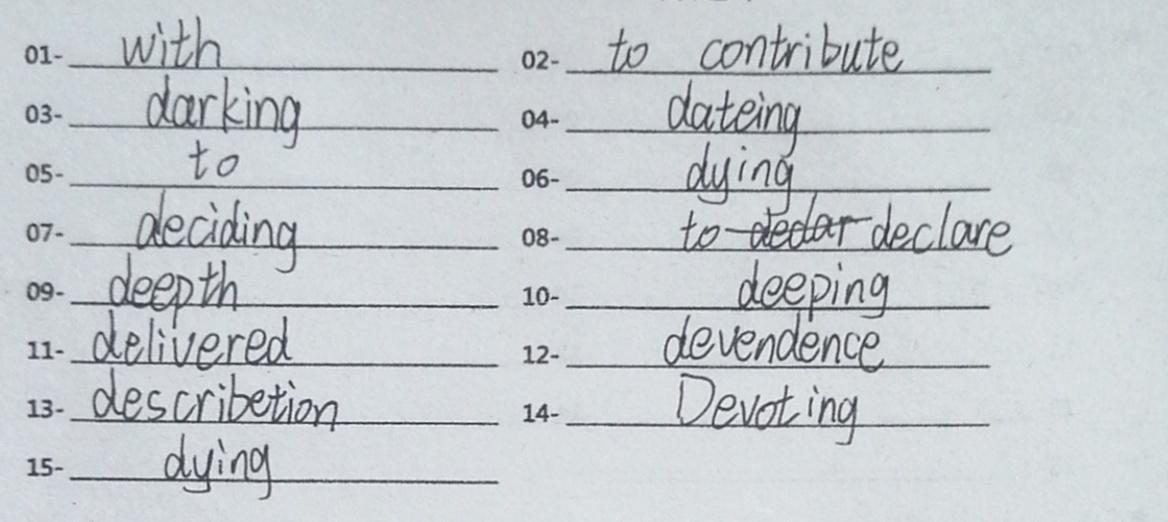 01- with 02- to contribute
03- darking 04- dateing
05- to 06- dying
07- deciding 08- to dedar declare
09- deepth 10- deeping
11- delivered 12- devendence
13- describetion 14- Devoting
15- dying